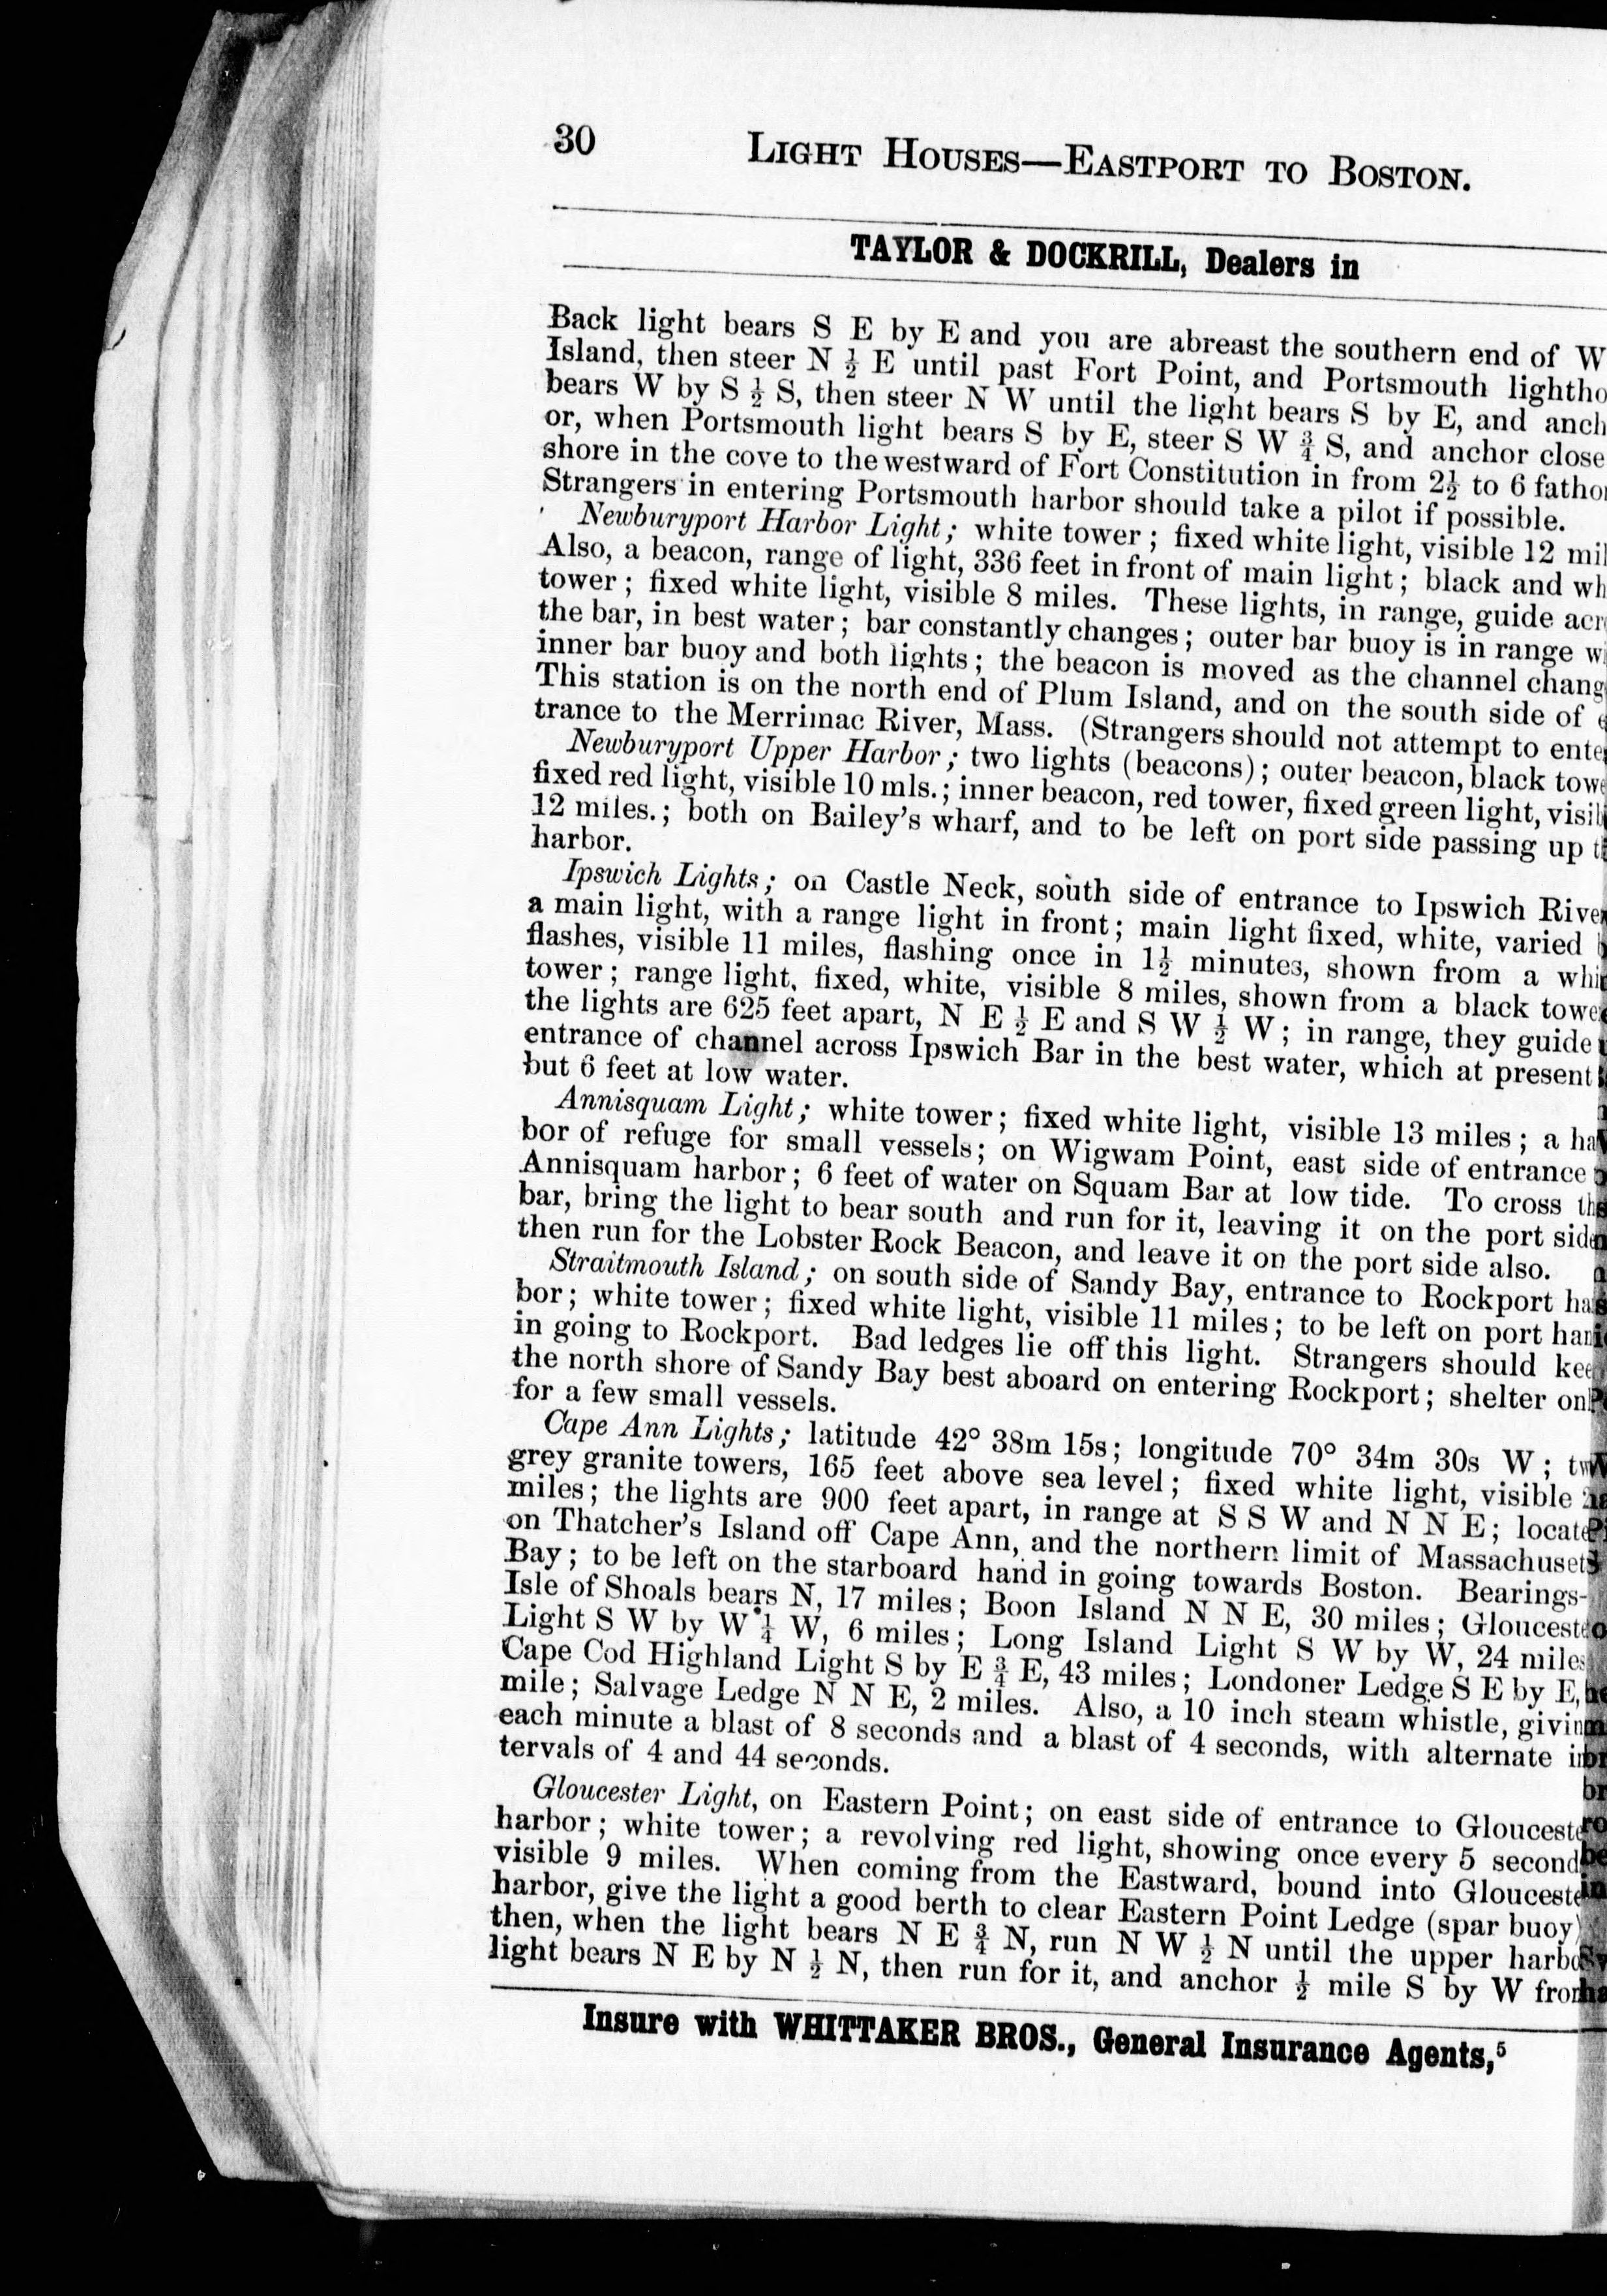 30 LIGHT HOUSES—EASTPORT TO BOSTON.
TAYLOR & DOCKRILL, Dealers in
Back light bears S E by E and you are abreast the southern end of W
Island, then steer N ½ E until past Fort Point, and Portsmouth lightho
bears W by S ½ S, then steer N W until the light bears S by E, and anch
or, when Portsmouth light bears S by E, steer S W ¾ S, and anchor close
shore in the cove to the westward of Fort Constitution in from 2½ to 6 fatho
Strangers in entering Portsmouth harbor should take a pilot if possible.
Newburyport Harbor Light; white tower; fixed white light, visible 12 mil
Also, a beacon, range of light, 336 feet in front of main light; black and wh
tower; fixed white light, visible 8 miles. These lights, in range, guide acr
the bar, in best water; bar constantly changes; outer bar buoy is in range w
inner bar buoy and both lights; the beacon is moved as the channel chang
This station is on the north end of Plum Island, and on the south side of
trance to the Merrimac River, Mass. (Strangers should not attempt to ente
Newburyport Upper Harbor; two lights (beacons); outer beacon, black tow
fixed red light, visible 10 mls.; inner beacon, red tower, fixed green light, visib
12 miles.; both on Bailey's wharf, and to be left on port side passing up t
harbor.
Ipswich Lights; on Castle Neck, south side of entrance to Ipswich Rive
a main light, with a range light in front; main light fixed, white, varied
flashes, visible 11 miles, flashing once in 1½ minutes, shown from a whi
tower; range light, fixed, white, visible 8 miles, shown from a black towe
the lights are 625 feet apart, N E ½ E and S W ½ W; in range, they guide
entrance of channel across Ipswich Bar in the best water, which at present
but 6 feet at low water.
Annisquam Light; white tower; fixed white light, visible 13 miles; a ha
bor of refuge for small vessels; on Wigwam Point, east side of entrance
Annisquam harbor; 6 feet of water on Squam Bar at low tide. To cross th
bar, bring the light to bear south and run for it, leaving it on the port side
then run for the Lobster Rock Beacon, and leave it on the port side also.
Straitmouth Island; on south side of Sandy Bay, entrance to Rockport ha
bor; white tower; fixed white light, visible 11 miles; to be left on port han
in going to Rockport. Bad ledges lie off this light. Strangers should kee
the north shore of Sandy Bay best aboard on entering Rockport; shelter on
for a few small vessels.
Cape Ann Lights; latitude 42° 38m 15s; longitude 70° 34m 30s W; tw
grey granite towers, 165 feet above sea level; fixed white light, visible
miles; the lights are 900 feet apart, in range at S S W and N N E; locate
on Thatcher's Island off Cape Ann, and the northern limit of Massachuset
Bay; to be left on the starboard hand in going towards Boston. Bearings-
Isle of Shoals bears N, 17 miles; Boon Island N N E, 30 miles; Glouceste
Light S W by W ¼ W, 6 miles; Long Island Light S W by W, 24 miles
Cape Cod Highland Light S by E ¾ E, 43 miles; Londoner Ledge S E by E,
mile; Salvage Ledge N N E, 2 miles. Also, a 10 inch steam whistle, givin
each minute a blast of 8 seconds and a blast of 4 seconds, with alternate in
tervals of 4 and 44 seconds.
Gloucester Light, on Eastern Point; on east side of entrance to Glouceste
harbor; white tower; a revolving red light, showing once every 5 second
visible 9 miles. When coming from the Eastward, bound into Glouceste
harbor, give the light a good berth to clear Eastern Point Ledge (spar buoy)
then, when the light bears N E ¾ N, run N W ½ N until the upper harbo
light bears N E by N ½ N, then run for it, and anchor ½ mile S by W from
Insure with WHITTAKER BROS., General Insurance Agents,⁵